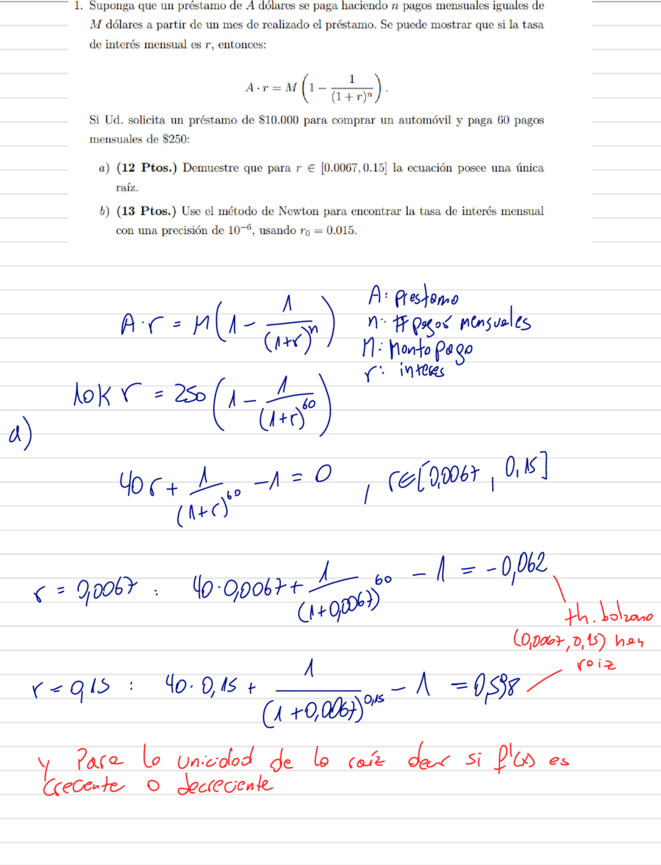 1. Suponga que un préstamo de A dólares se paga haciendo n pagos mensuales iguales de
M dólares a partir de un mes de realizado el préstamo. Se puede mostrar que si la tasa
de interés mensual es r, entonces:
A · r = M (1 − 1/(1 + r)^n).
Si Ud. solicita un préstamo de $10.000 para comprar un automóvil y paga 60 pagos
mensuales de $250:
a) (12 Ptos.) Demuestre que para r ∈ [0.0067, 0.15] la ecuación posee una única
raíz.
b) (13 Ptos.) Use el método de Newton para encontrar la tasa de interés mensual
con una precisión de 10^−6, usando r_0 = 0.015.
A·r = M(1 − 1/(1+r)^n)
A: Prestamo
n: # pagos mensuales
M: Monto pago
r: interes
10K r = 250(1 − 1/(1+r)^60)
a)
40r + 1/(1+r)^60 − 1 = 0 , r∈[0,0067 , 0,15]
r = 0,0067 : 40·0,0067 + 1/(1+0,0067)^60 − 1 = −0,062
th. bolzano
(0,0067, 0,15) hay
raiz
r = 0,15 : 40·0,15 + 1/(1+0,0067)^0,15 − 1 = 0,598
y Para la unicidad de la raíz decir si f'(x) es
crecente o decreciente